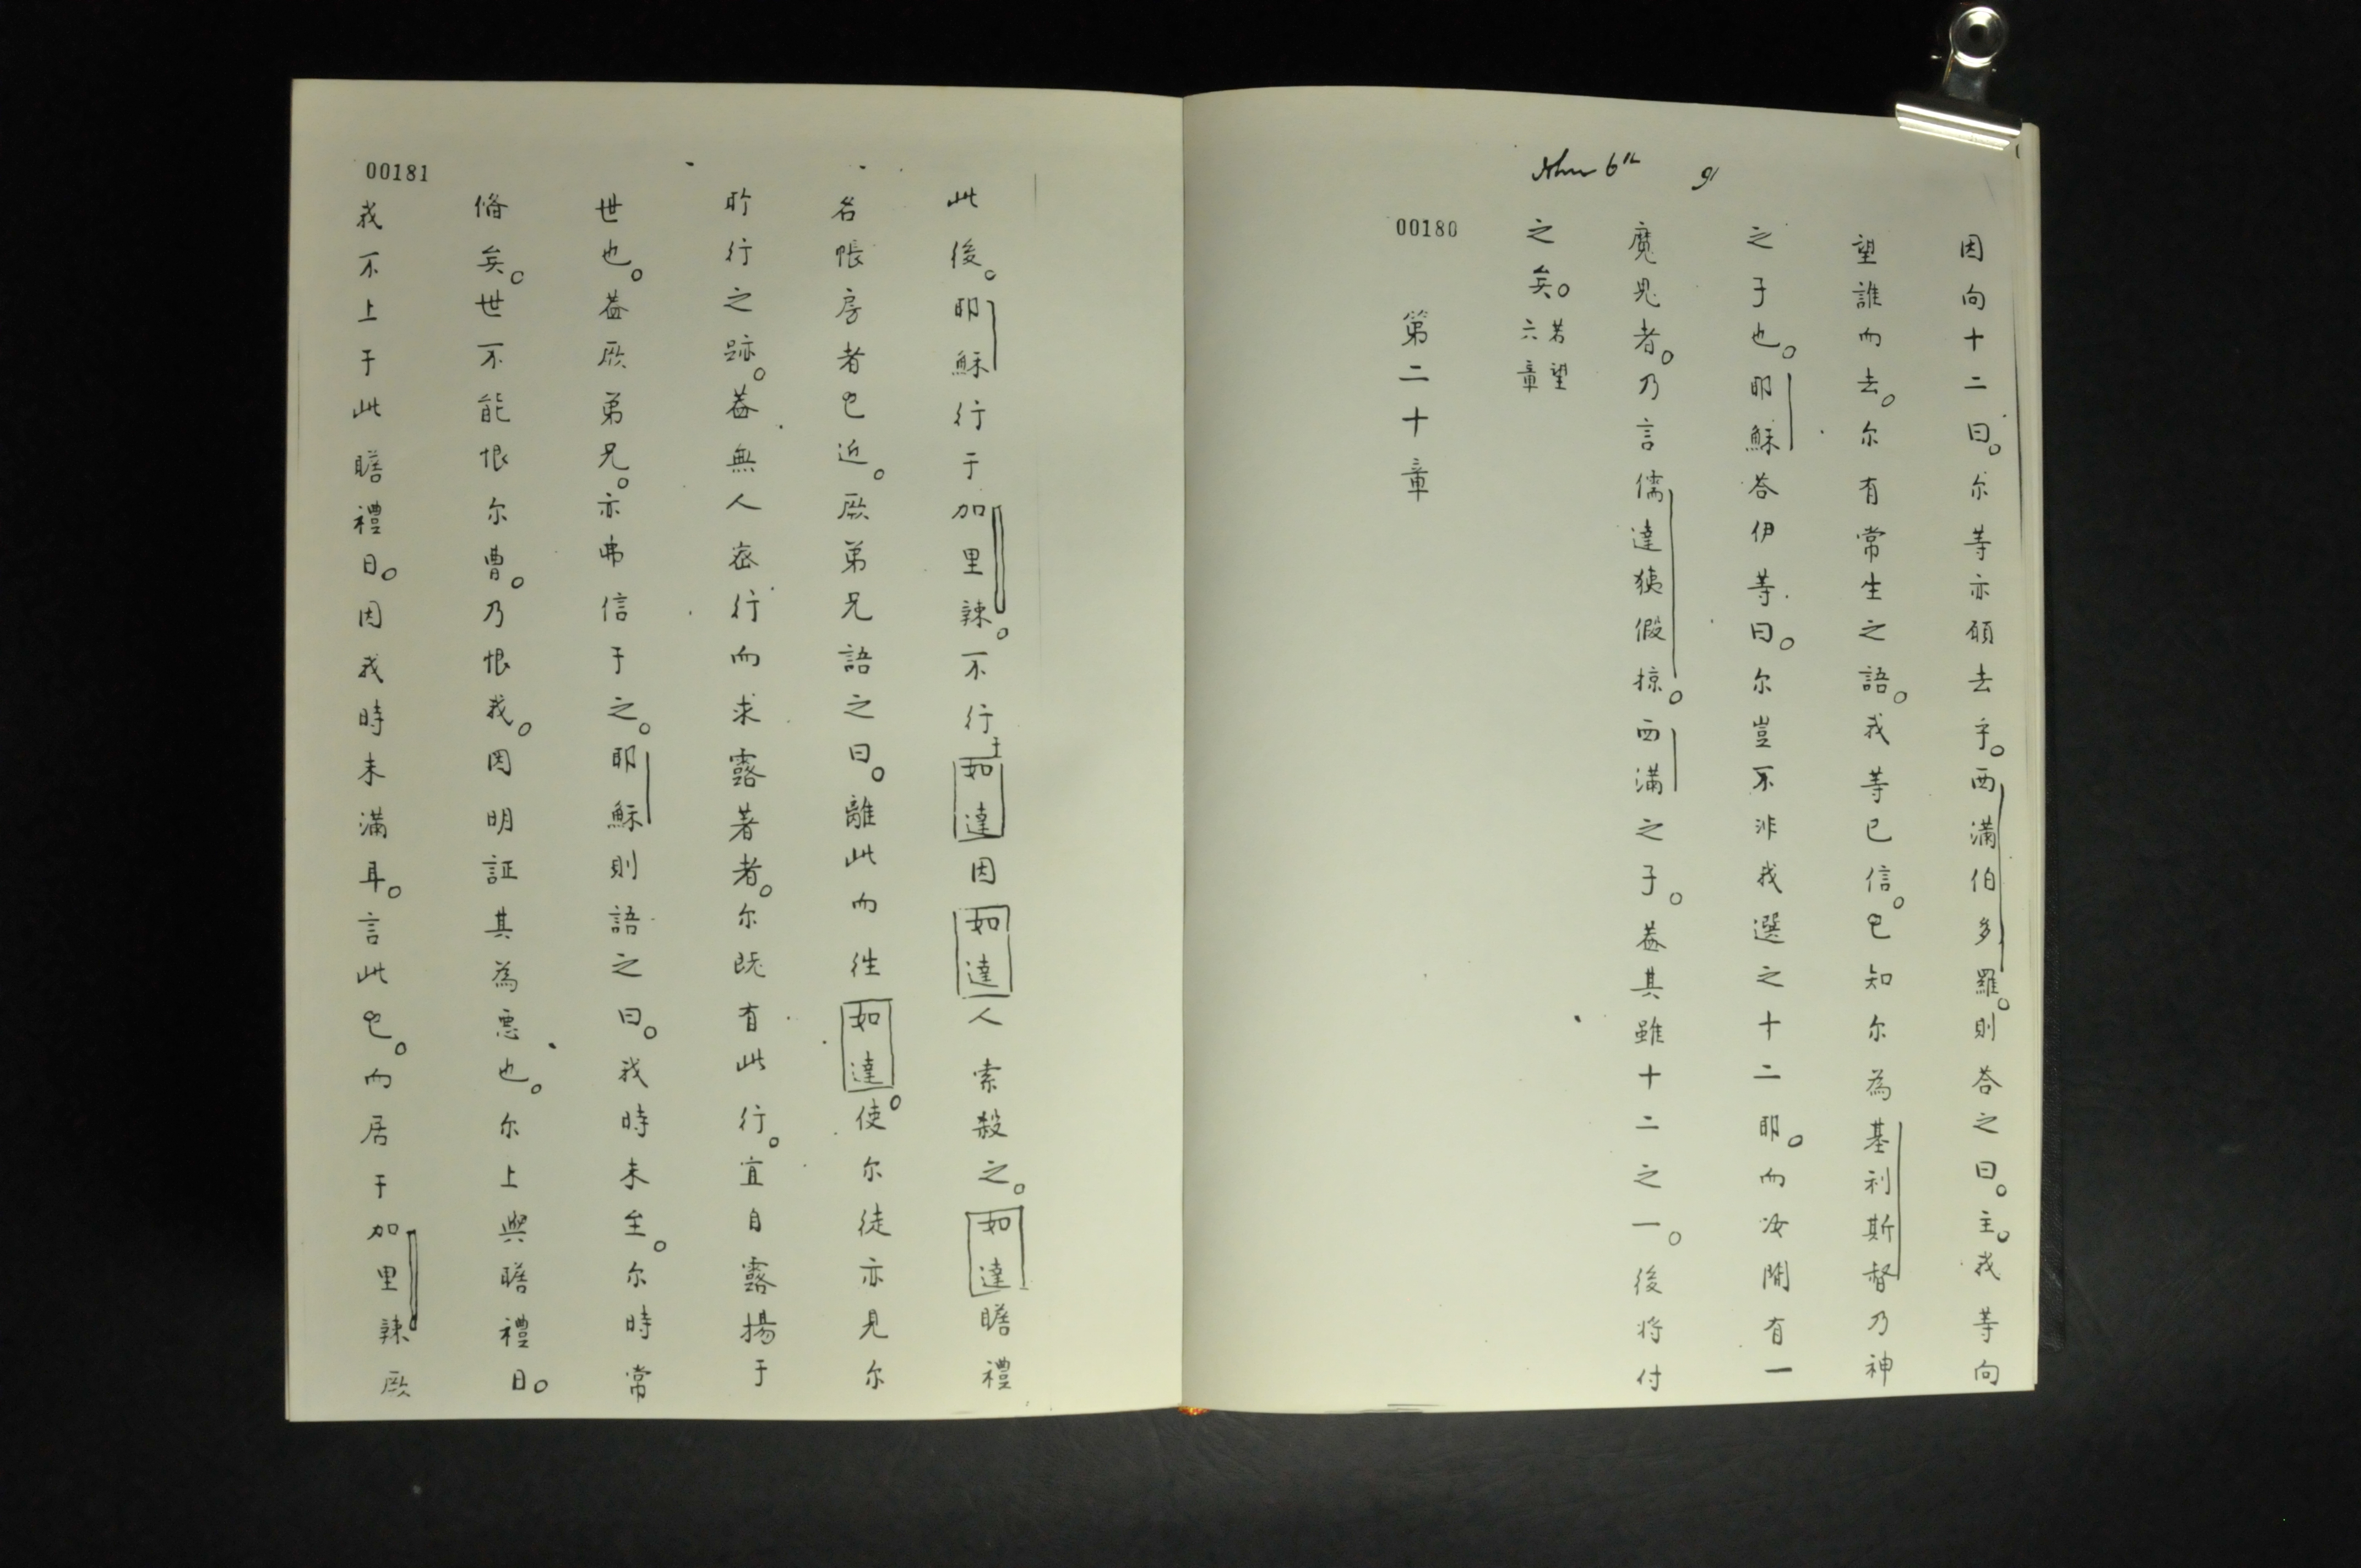 John 6th 91
因向十二曰。尔等亦願去乎。西滿伯多羅。則荅之曰。主。我等向
望誰而去。尔有常生之語。我等已信。已知尔為基利斯督乃神
之子也。耶穌荅伊等曰。尔豈不非我選之十二耶。而汝間有一
魔鬼者。乃言儒達猗假掠。西滿之子。葢其雖十二之一。後将付
之矣。若望六章
第二十章
00180
此後。耶穌行于加里辣。不行于如達因如達人索殺之。如達瞻禮
名帳房者已近。厥弟兄語之曰。離此而徃如達。使尔徒亦見尔
所行之跡。葢無人宻行而求露著者。尔既有此行。宜自露揚于
世也。葢厥弟兄。亦弗信于之。耶穌則語之曰。我時未至。尔時常
偹矣。世不能恨尔曹。乃恨我。因明証其為悪也。尔上與瞻禮日。
我不上于此瞻禮日。因我時未滿耳。言此已。而居于加里辣厥
00181